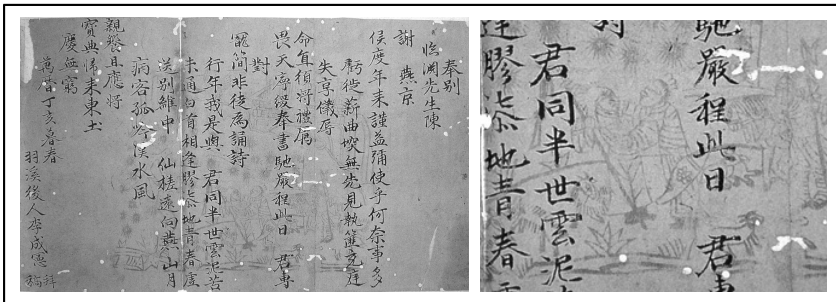 奉别
臨淵先生陳
謝 燕京
候度年来謹益彌使乎何奈事多
虧徙薪曲突無先見執庭
失享儀辱
命耳須將禮
畏天寧緩奉書馳嚴程此日 君專
對
寵簡非徒為誦詩
行年我是與 君同半世雲泥苦
未通白首相逢膠漆地青春虛
送别維中 仙槎遠向燕山月
病客孤吟漢水風
親懿且應将
寶典帰来東土
慶無窮
萬曆丁亥春
羽溪後人李成憲 拜
稿
馳嚴程此日 君
君同半世雲泥
逢膠漆地青春